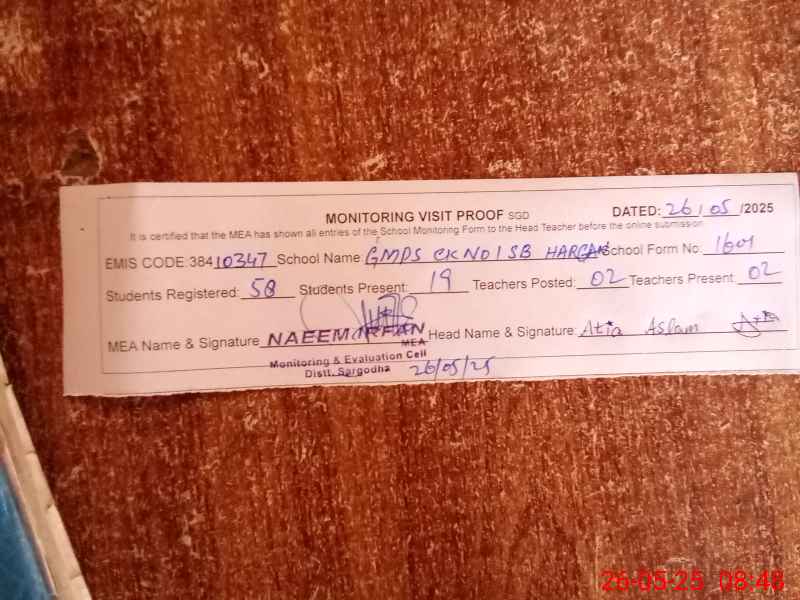 MONITORING VISIT PROOF SGD DATED: 26/05/2025
It is certified that the MEA has shown all entries of the School Monitoring Form to the Head Teacher before the online submission
EMIS CODE:38410347 School Name: GMPS CK NO 1 SB HARGAN School Form No: 1601
Students Registered: 58 Students Present: 19 Teachers Posted: 02 Teachers Present: 02
MEA Name & Signature NAEEM IRFAN Head Name & Signature: Atia Aslam Atia
MEA
Monitoring & Evaluation Cell
Distt. Sargodha 26/05/25
26-05-25 08:48